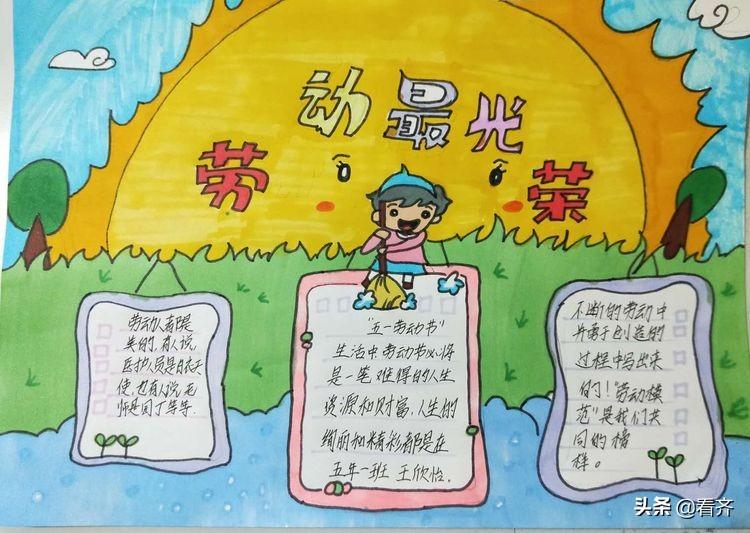 劳动最光荣
劳动人都是
美的,有人说,
医护人员是白衣天
使,也有人说老
师是园丁等等.
"五一劳动节"
生活中劳动节必将
是一笔难得的人生
资源和财富,人生的
绚丽和精彩都是在
五年一班 王欣怡.
不断的劳动中
并勇于创造的
过程中写出来
的!"劳动模
范"是我们共
同的榜
样。
头条 @看齐